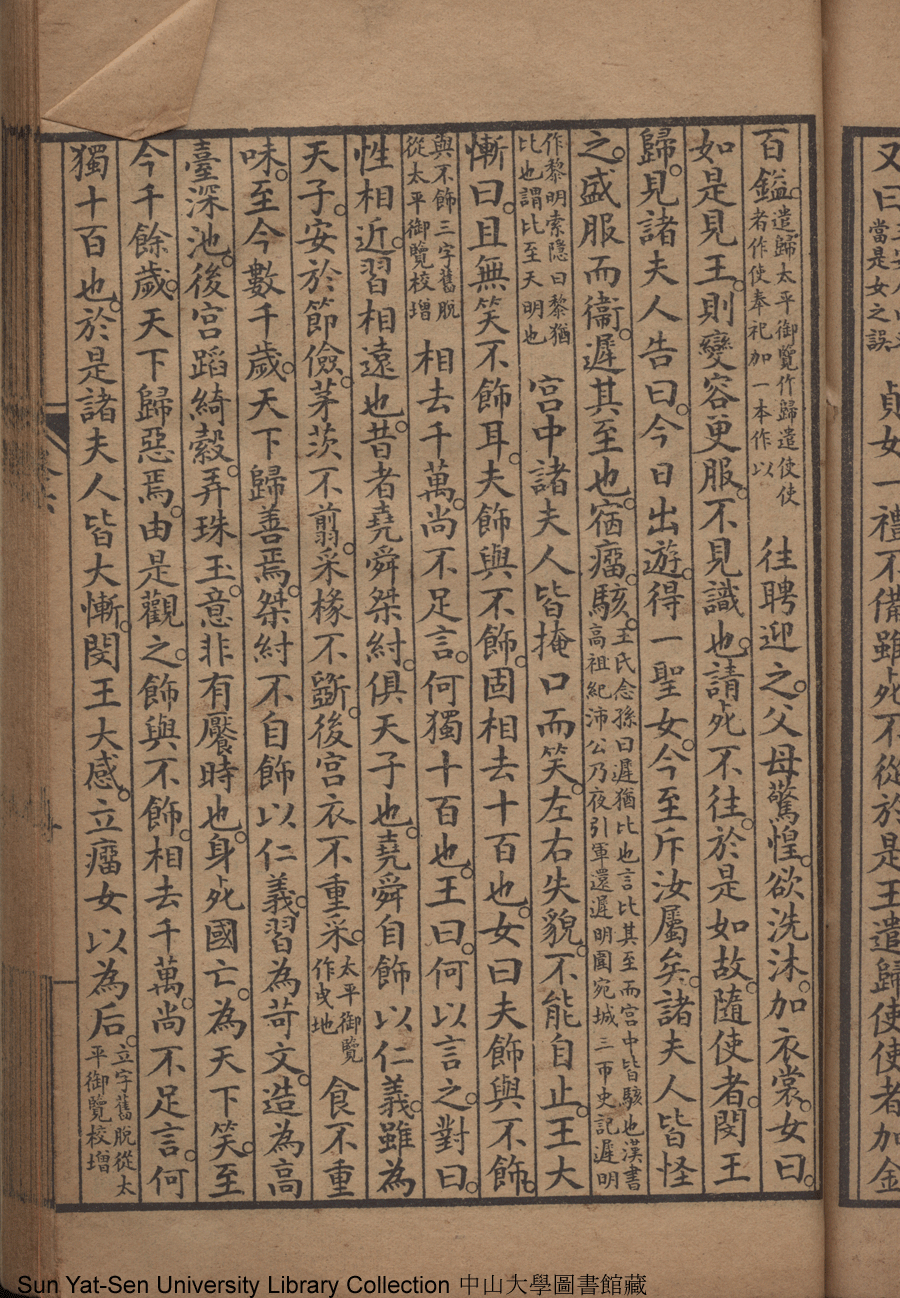 貞女一禮不備雖死不從於是王遣歸使使者加金
百鎰。遣歸太平御覽作歸遣使使者作使奉祀加一本作以往聘迎之。父母驚惶。欲洗沐。加衣裳。女曰。
如是見王。則變容更服。不見識也。請死不往。於是如故。隨使者。閔王
歸。見諸夫人告曰。今日出遊。得一聖女。今至斥汝屬矣。諸夫人皆怪
之。盛服而衞。遲其至也。宿瘤。駭。王氏念孫曰遲猶比也言比其至而宮中皆駭也漢書高祖紀沛公乃夜引軍還遲明圍宛城三帀史記遲明
作黎明索隱曰黎猶比也謂比至天明也宮中諸夫人皆掩口而笑。左右失貌。不能自止。王大
慚曰。且無笑不飾耳。夫飾與不飾。固相去十百也。女曰夫飾與不飾。
與不飾三字舊脫從太平御覽校增相去千萬。尚不足言。何獨十百也。王曰。何以言之。對曰。
性相近。習相遠也。昔者堯舜桀紂。俱天子也。堯舜自飾以仁義。雖為
天子。安於節儉。茅茨不翦。采椽不斲。後宮衣不重采。太平御覽作曳地食不重
味。至今數千歲。天下歸善焉。桀紂不自飾以仁義。習為苛文。造為高
臺深池。後宮蹈綺縠。弄珠玉。意非有饜時也。身死國亡。為天下笑。至
今千餘歲。天下歸惡焉。由是觀之。飾與不飾。相去千萬。尚不足言。何
獨十百也。於是諸夫人皆大慚。閔王大感。立瘤女以為后。立字舊脫從太平御覽校增
Sun Yat-Sen University Library Collection 中山大學圖書館藏